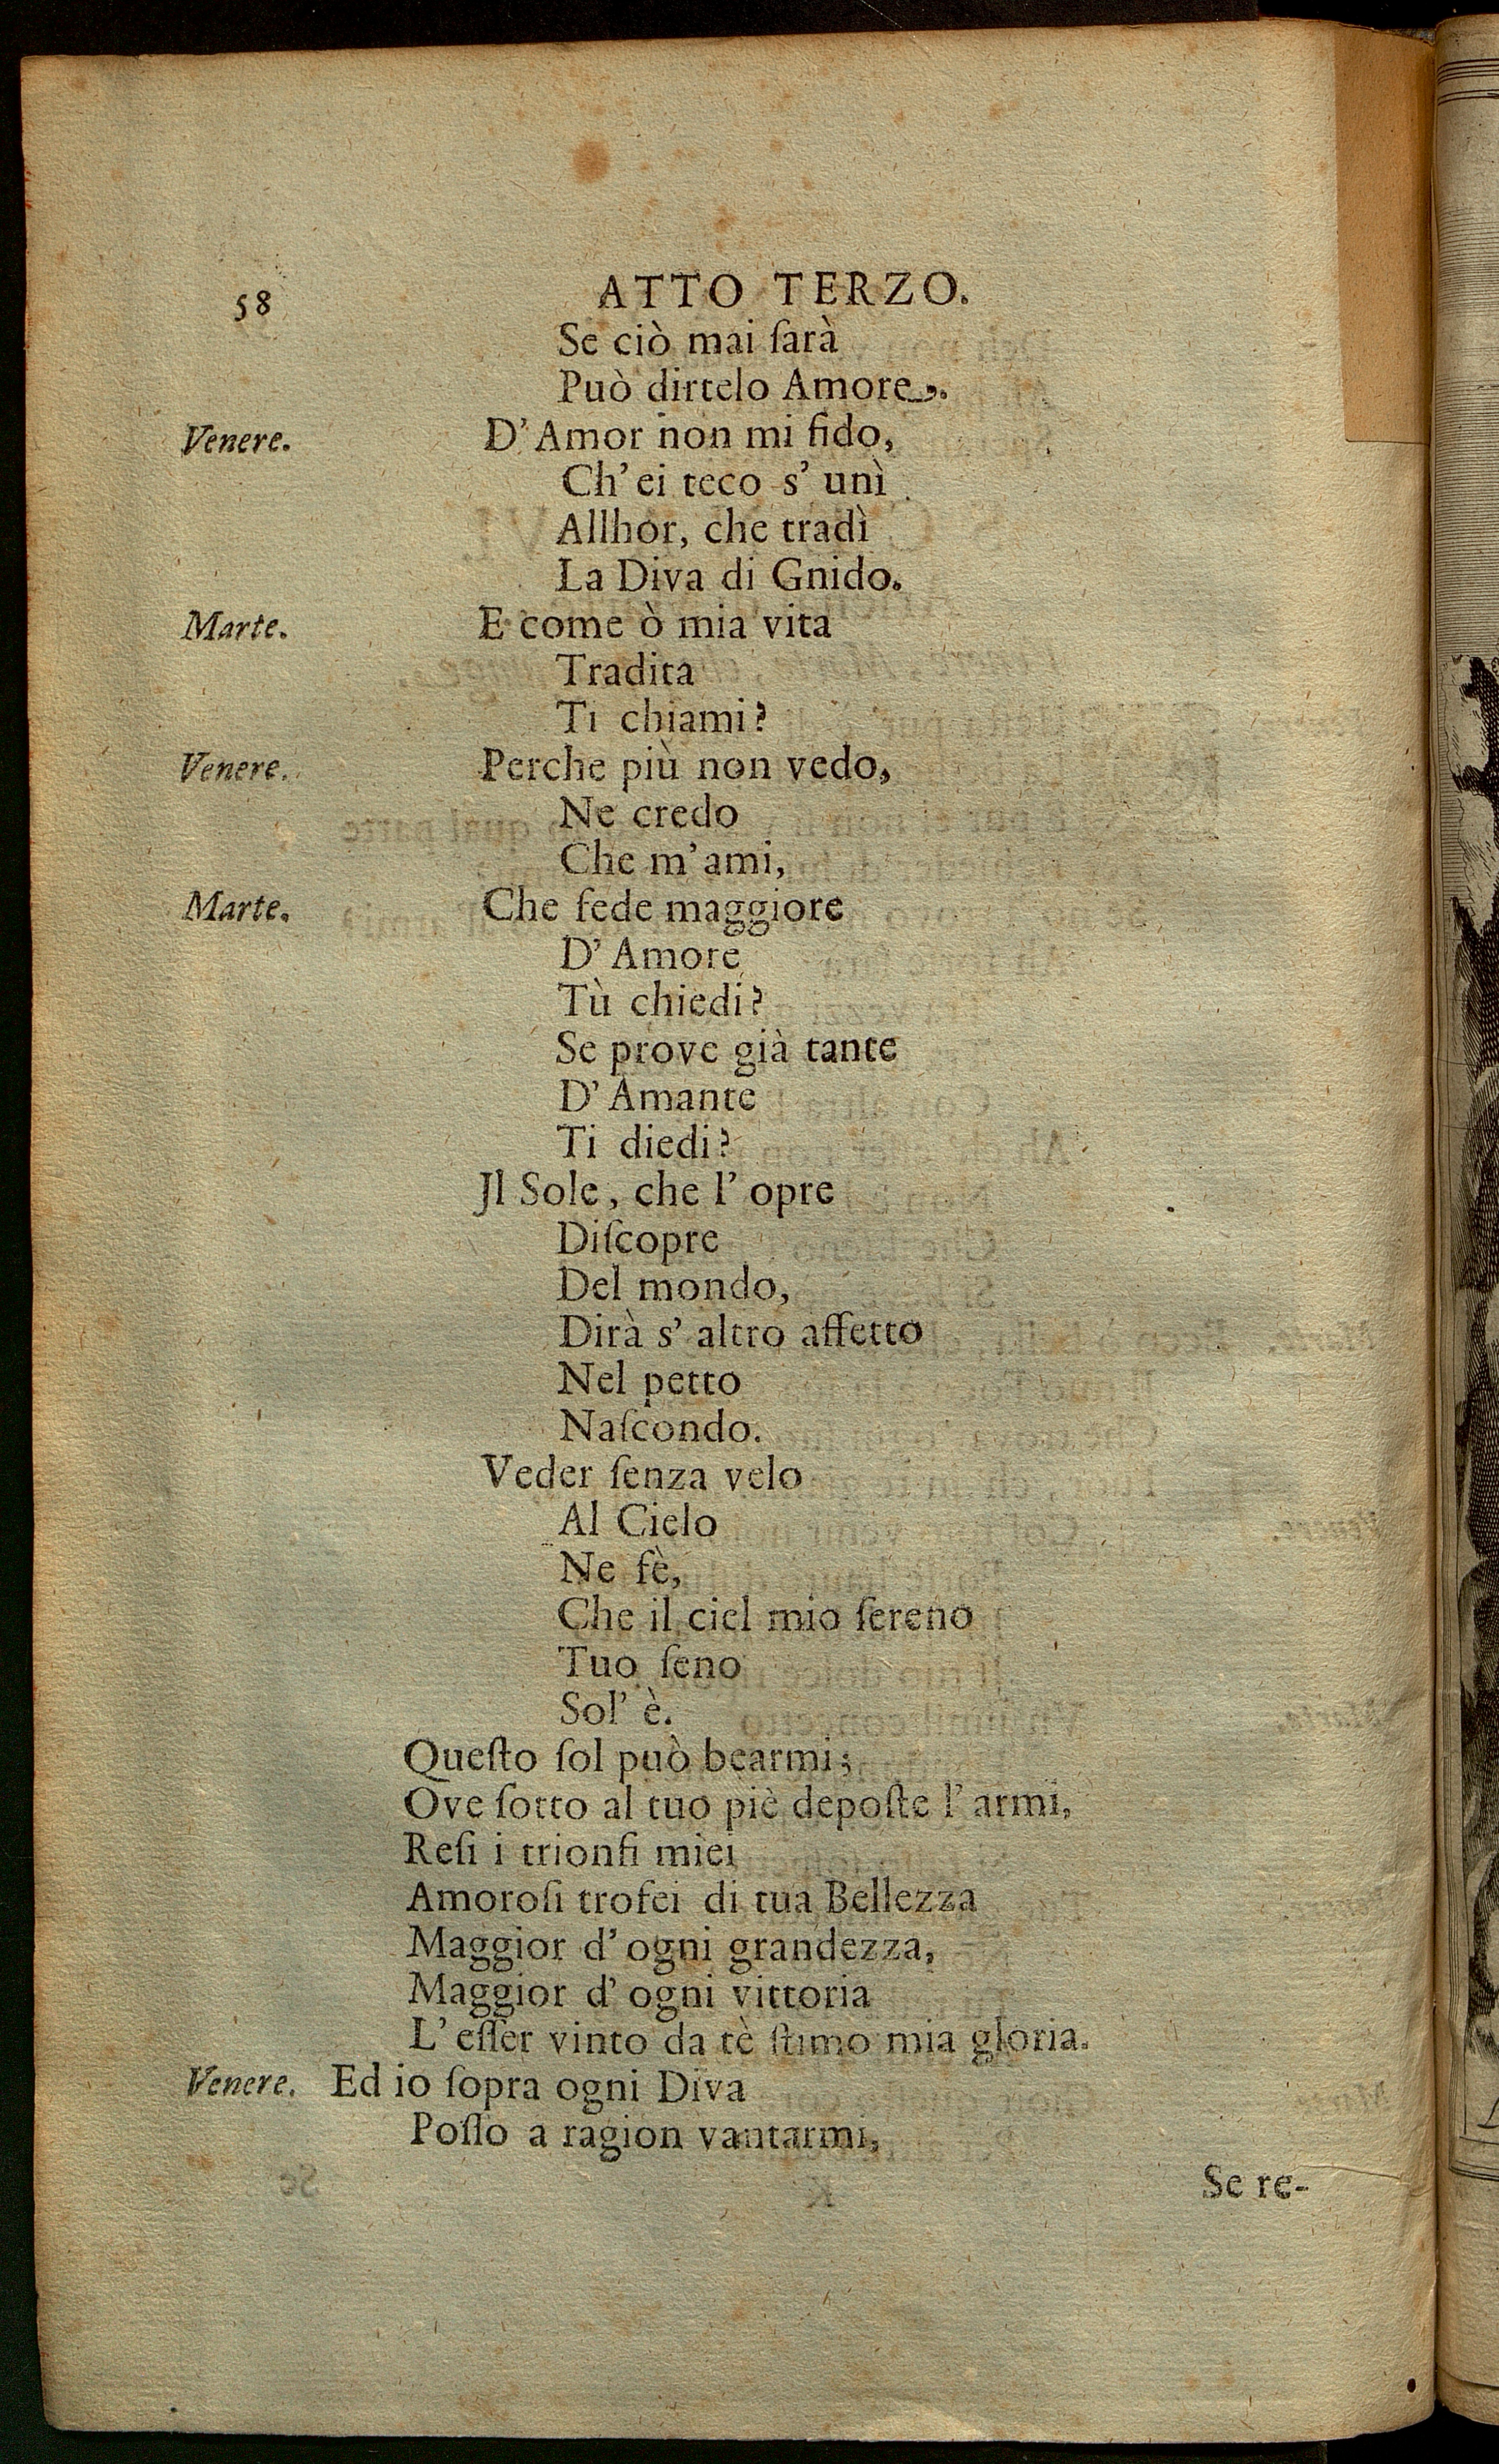 58 ATTO TERZO.
Se ciò mai ſarà
Può dirtelo Amore.
Venere. D' Amor non mi fido,
Ch' ei teco s' unì
Allhor, che tradì
La Diva di Gnido.
Marte. E come ò mia vita
Tradita
Ti chiami?
Venere. Perche più non vedo,
Ne credo
Che m' ami,
Marte. Che fede maggiore
D' Amore
Tù chiedi?
Se prove già tante
D' Amante
Ti diedi?
Jl Sole, che l' opre
Diſcopre
Del mondo,
Dirà s' altro affetto
Nel petto
Naſcondo.
Veder ſenza velo
Al Cielo
Ne fè,
Che il ciel mio ſereno
Tuo ſeno
Sol' è.
Queſto ſol può bearmi;
Ove ſotto al tuo piè depoſte l' armi,
Reſi i trionfi miei
Amoroſi trofei di tua Bellezza
Maggior d' ogni grandezza,
Maggior d' ogni vittoria
L' eſſer vinto da tè ſtimo mia gloria.
Venere. Ed io ſopra ogni Diva
Poſſo a ragion vantarmi,
Se re-